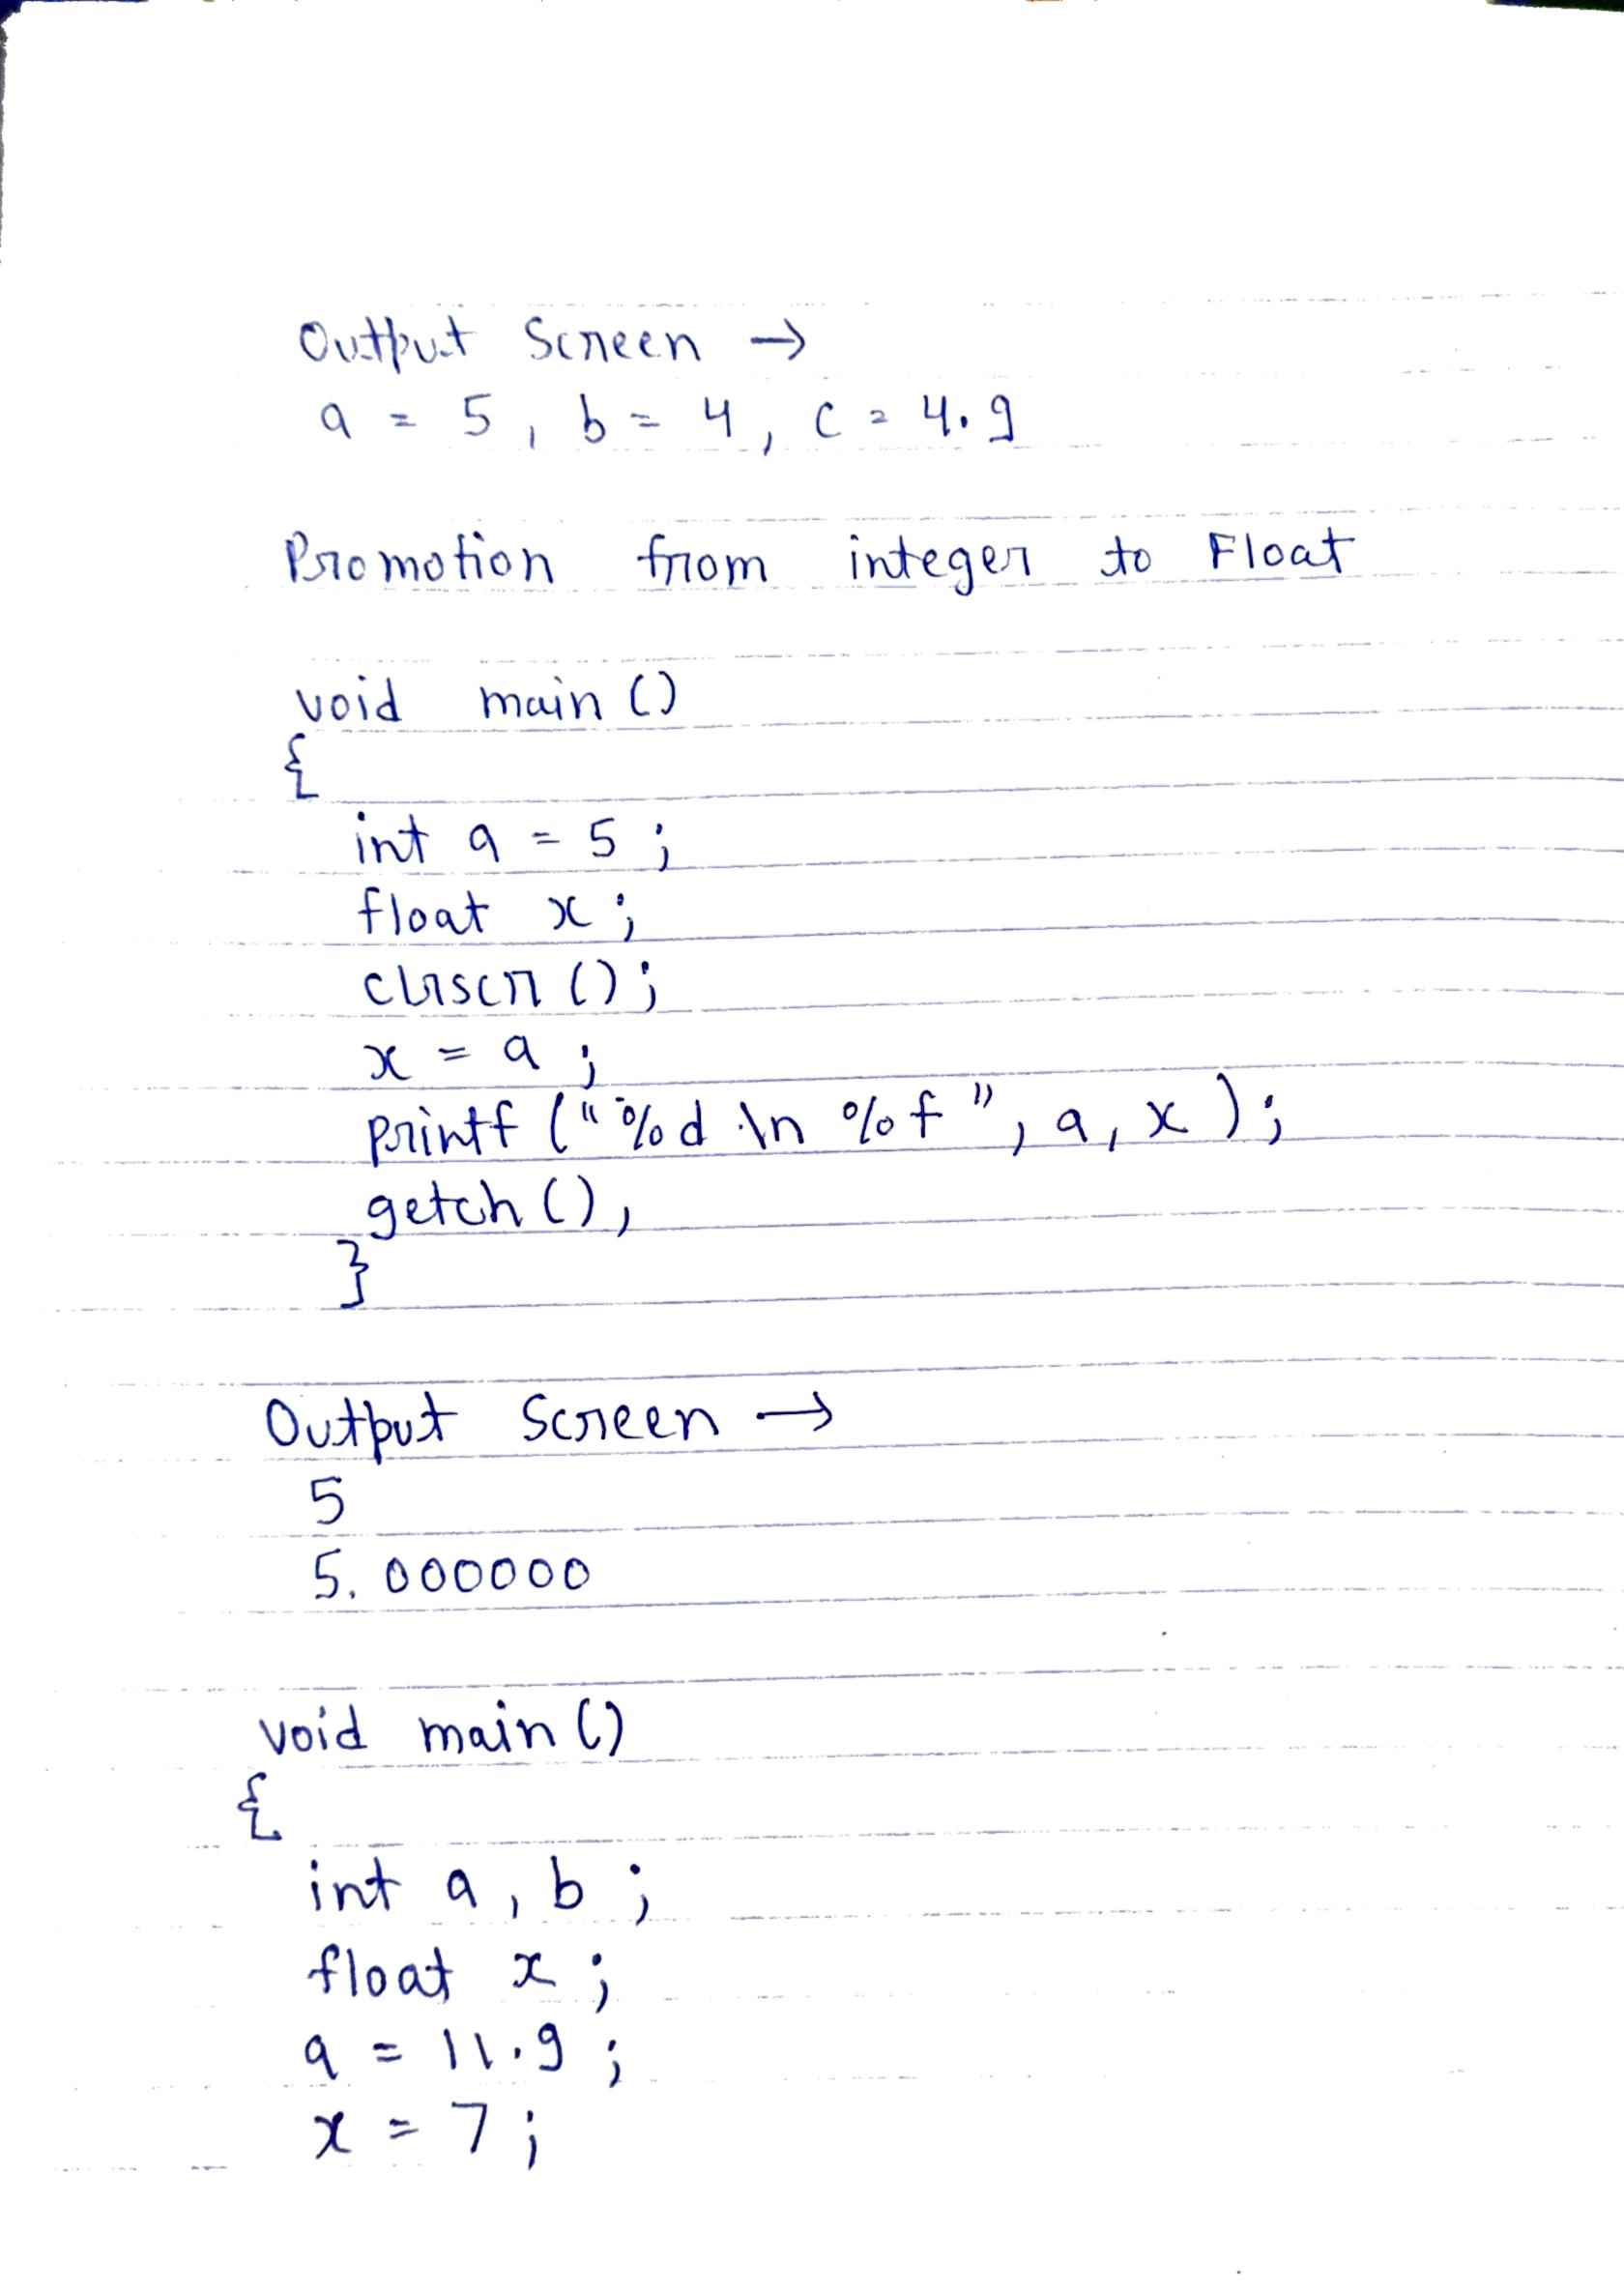 Output Screen →
a = 5, b = 4, c = 4.9
Promotion from integer to Float
void main ()
{
int a = 5 ;
float x ;
clrscr () ;
x = a ;
printf ("%d \n %f ", a, x ) ;
getch () ,
}
Output Screen →
5
5. 000000
void main ()
{
int a , b ;
float x ;
a = 11.9 ;
x = 7 ;